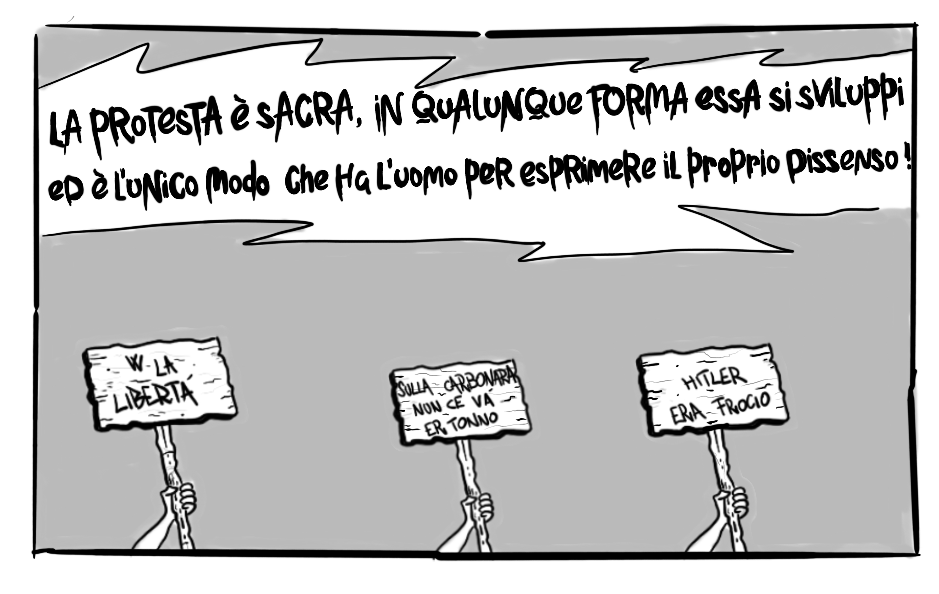 LA PROTESTA È SACRA, IN QUALUNQUE FORMA ESSA SI SVILUPPI
ED È L'UNICO MODO CHE HA L'UOMO PER ESPRIMERE IL PROPRIO DISSENSO!
W LA
LIBERTÀ
SULLA CARBONARA
NON CE VÀ
ER TONNO
HITLER
ERA FROCIO